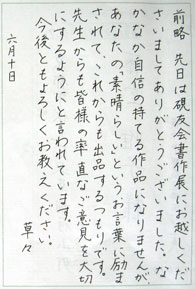 前略　先日は硯友会書作展にお越しくだ
さいましてありがとうございました。な
かなか自信の持てる作品になりませんが、
あなたの「素晴らしい」というお言葉に励ま
されて、これからも出品するつもりです。
先生からも皆様の率直なご意見を大切
にするようにと言われています。
今後ともよろしくお教えください。
草々
六月十日